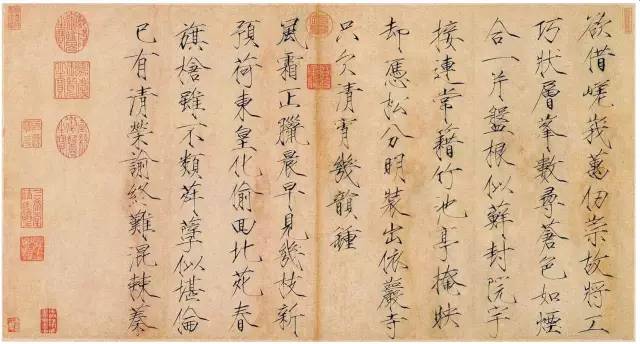 欲借嵯峩萬仞崇故將工
巧狀層峯數尋蒼色如煙
合一片盤根似蘚封院宇
接連常籍竹池亭掩映
却憑松分明裝出依巖寺
只欠清宵幾韻鍾
風霜正臘晨早見幾枝新
預荷東皇化偷回北苑春
旗槍雖不類孽似堪倫
已有清榮諭終難混棘蓁